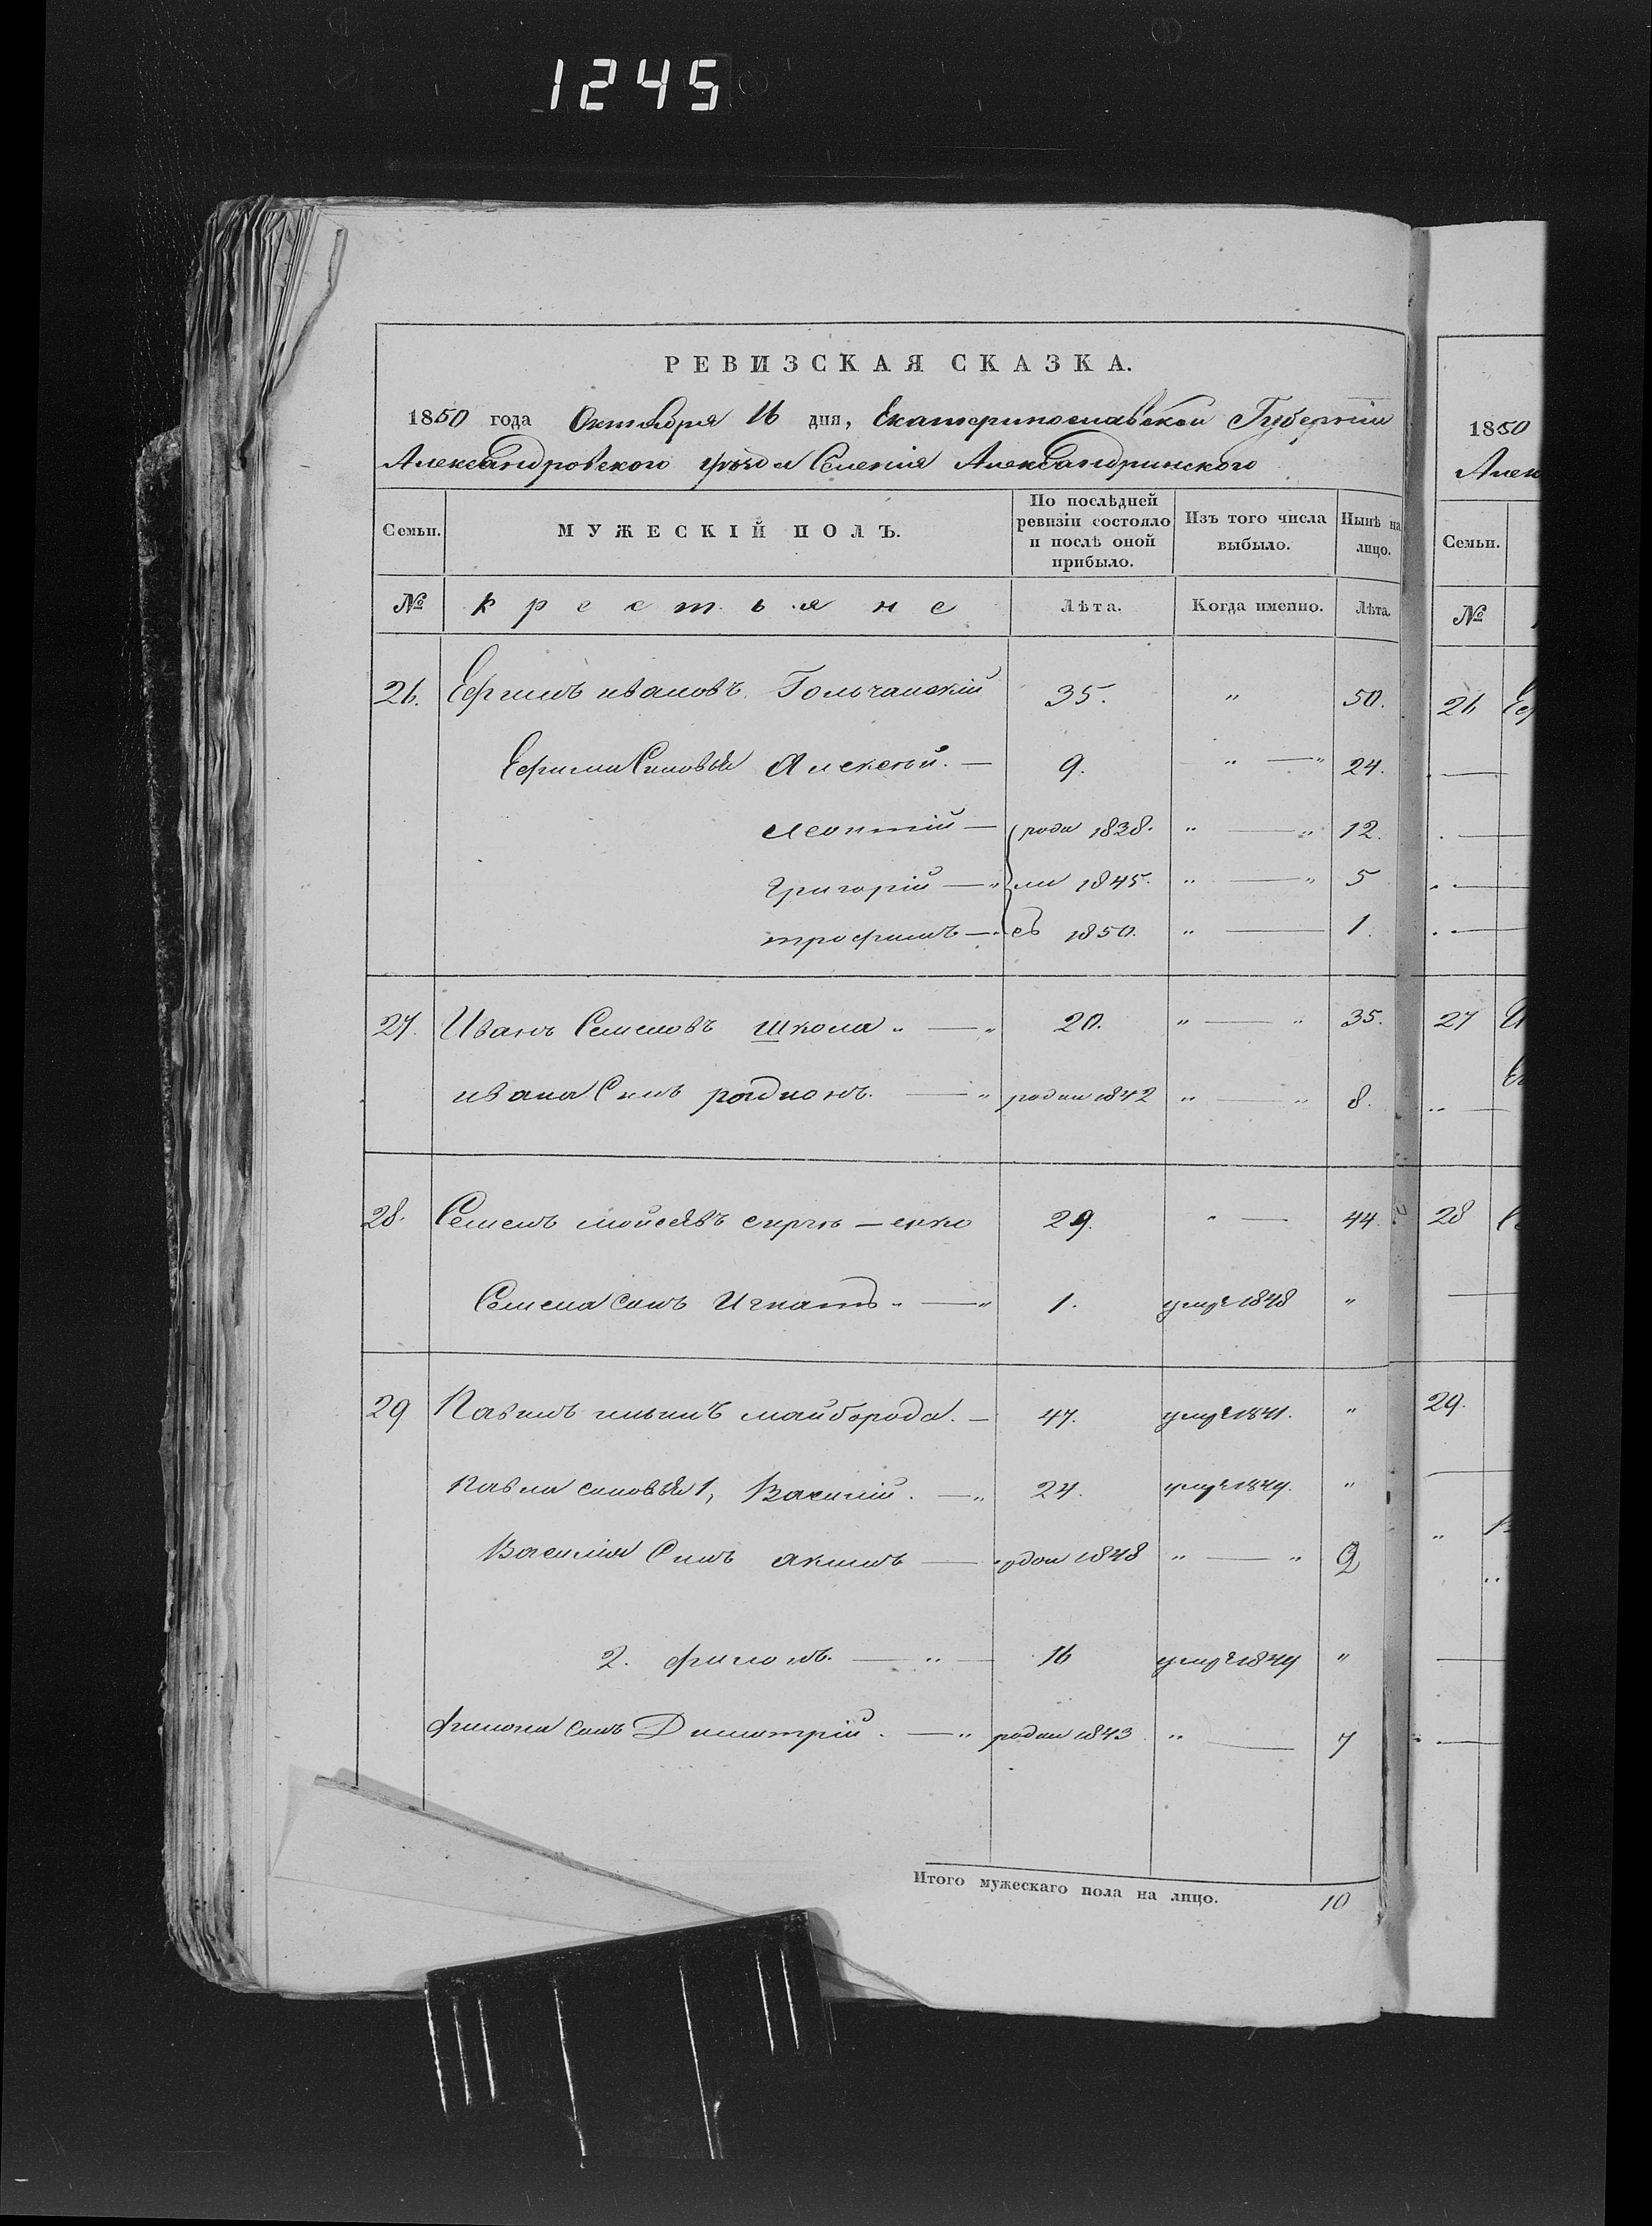 1245
РЕВИЗСКАЯ СКАЗКА.
1850 года Октября 16 дня, Екатеринославской Губерніи
Александровского уѣзда Селенія Александринского
Семьи. МУЖЕСКІЙ ПОЛЪ. По послѣдней ревизіи состояло и послѣ оной прибыло. Изъ того числа выбыло. Нынѣ на лицо.
№ Крестьяне Лѣта. Когда именно. Лѣта.
26. Ефимъ ивановъ Гольчанскій 35. " 50.
Ефима Синовья Алексѣй. — 9. " — " 24.
Леонтій — роди 1838. " — " 12.
Григорій — " ли 1845. " — " 5
трофимъ — " съ 1850. " — 1.
27. Иванъ Семеновъ Школа " — " 20. " — " 35.
ивана Синъ родионъ. — " родил 1842 " — " 8.
28. Семенъ мойсеевъ — енко 29. " — 44.
Семена синъ Игнатъ " — " 1. умре 1848 "
29 Павелъ ильинъ майборода. — 47. умре 1841. "
Павла синовья 1, Василій. — " 24. умре 1849. "
Василія Синъ акимъ — родил 1848 " — " 2
2. филонъ. — " — 16 умре 1849 "
филона синъ Димитрій. — " родил 1843 " — 7
Итого мужескаго пола на лицо. 10
1850
Алек
Семьи.
№
26 Еф
27 И
28 Се
29.